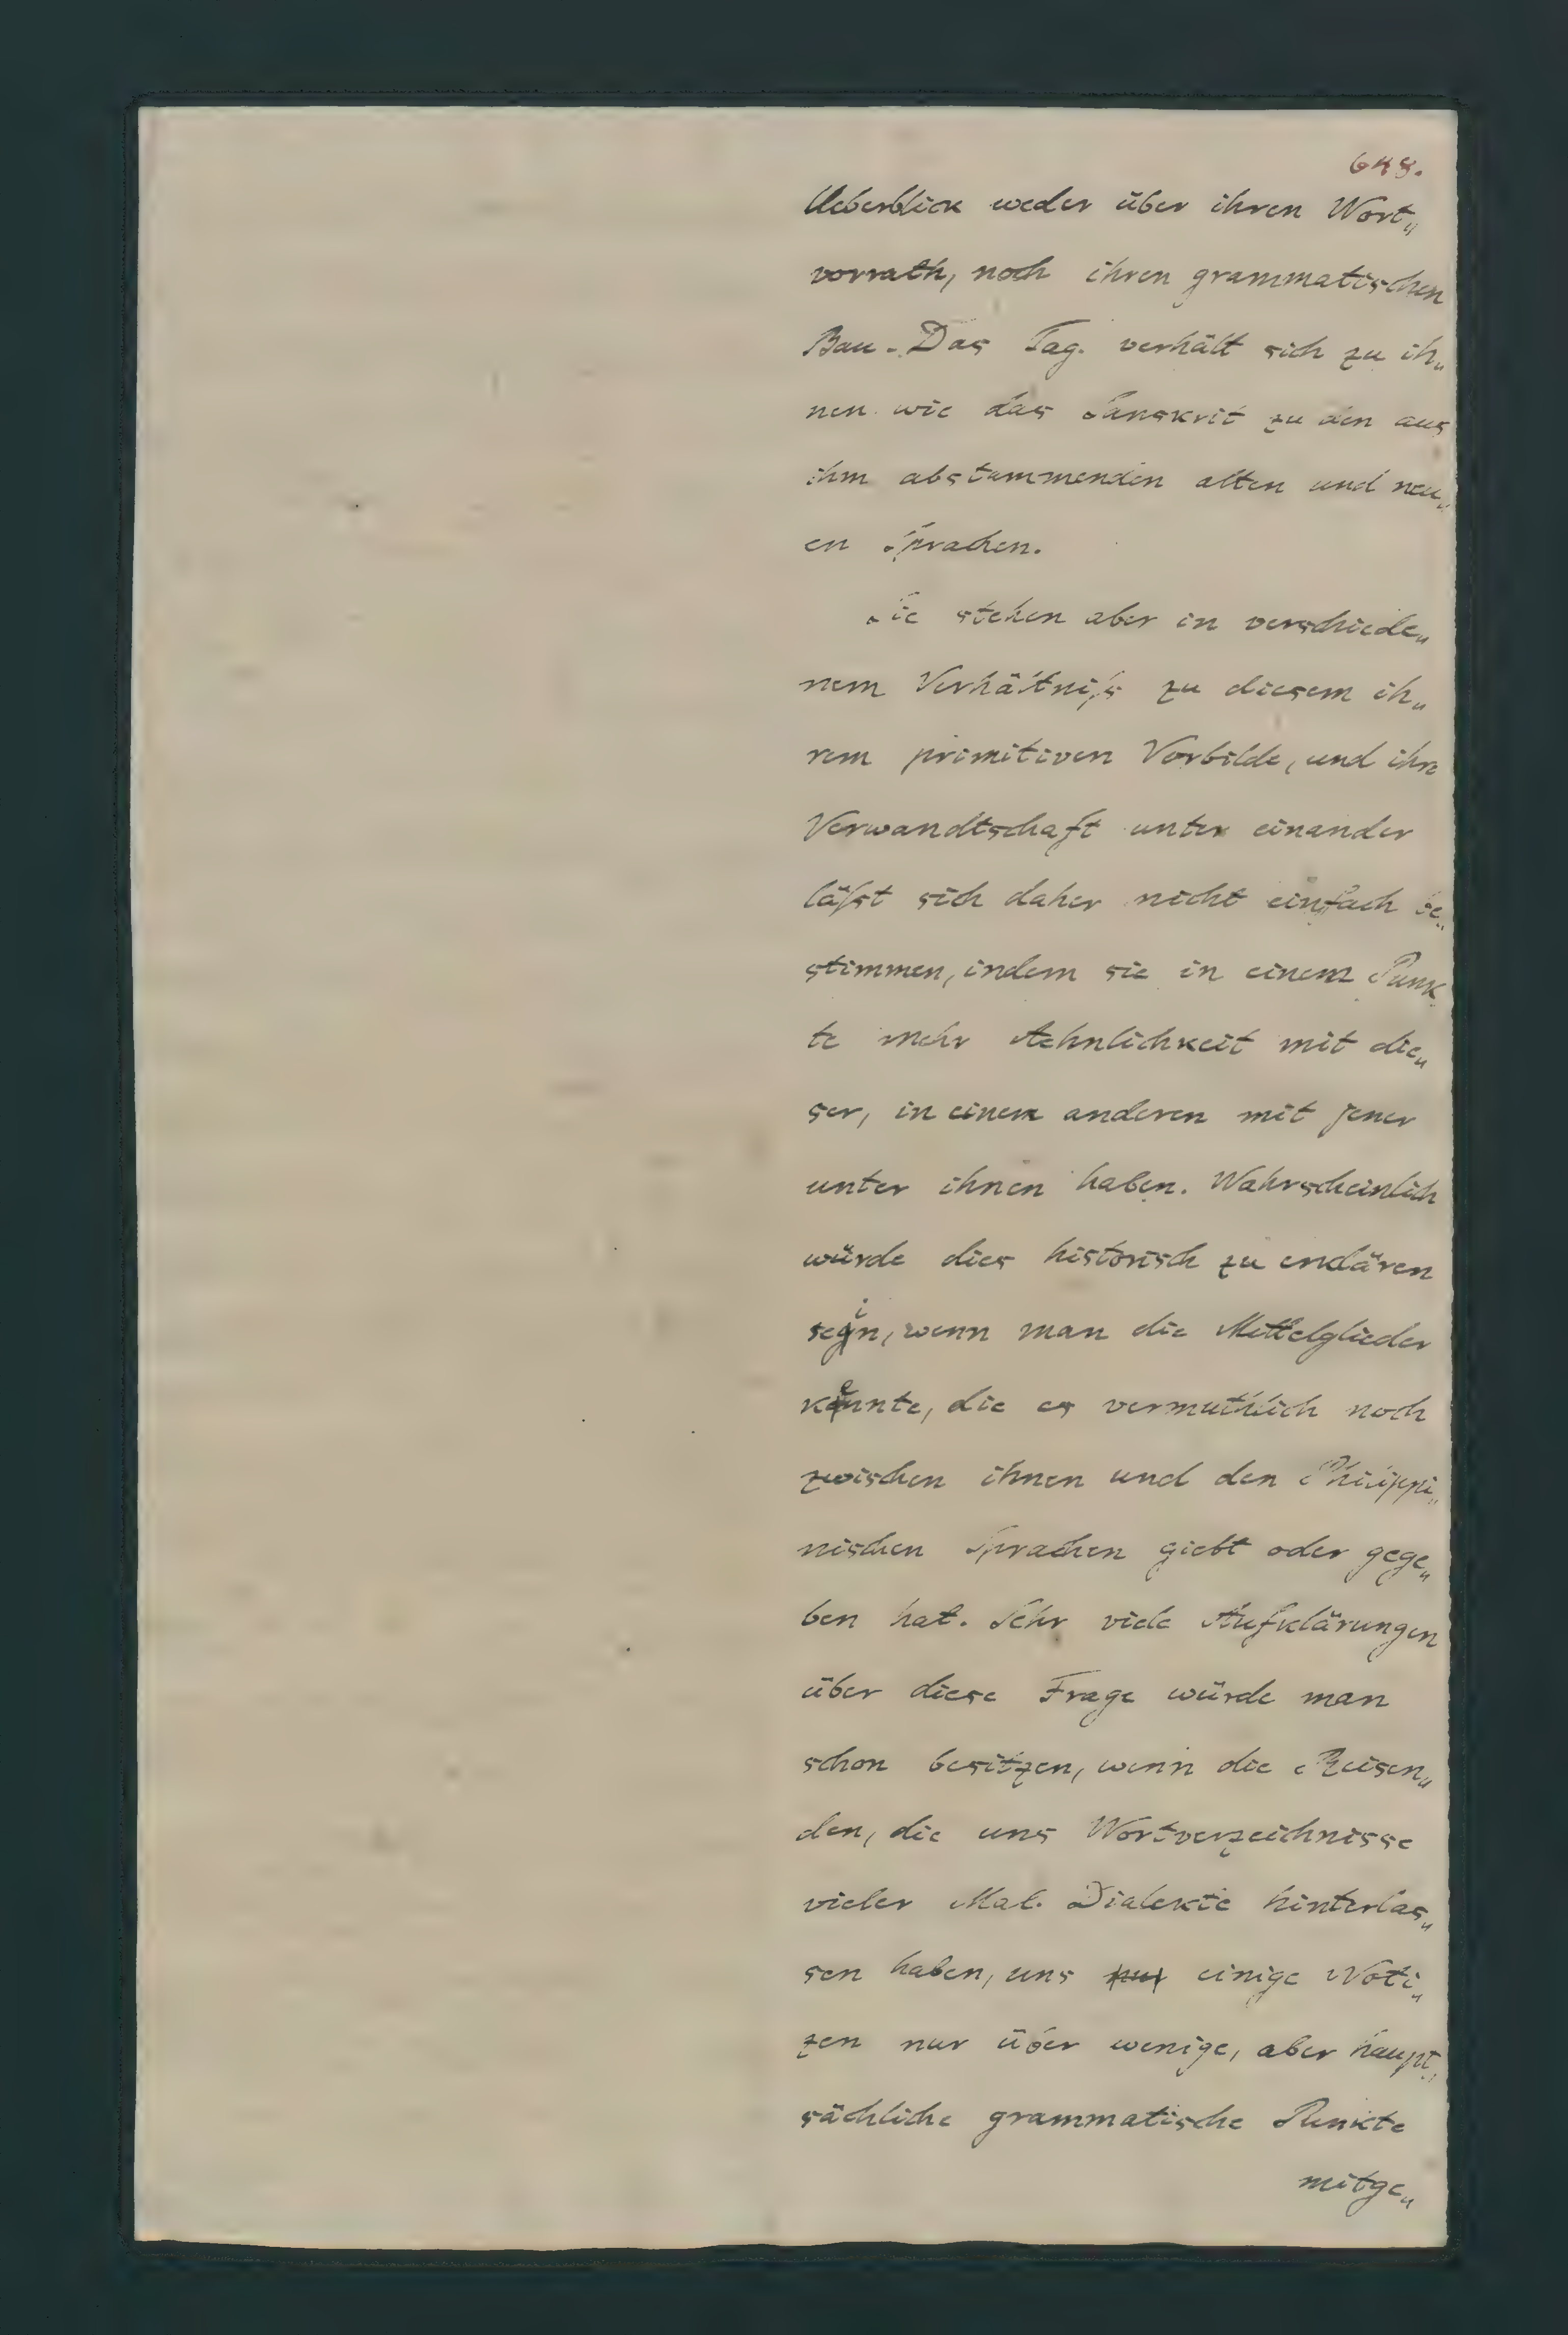 648.
Ueberblick weder über ihren Wort„
vorrath, noch ihren grammatischen
Bau. Das Tag. verhält sich zu ih„
nen wie das Sanskrit zu den aus
ihm abstammenden alten und neu„
en Sprachen.
Sie stehen aber in verschiede„
nem Verhältniſs zu diesem ih„
rem primitiven Vorbilde, und ihre
Verwandtschaft unter einander
läſst sich daher nicht einfach be„
stimmen, indem sie in einem Punk
te mehr Aehnlichkeit mit die„
ser, in einem anderen mit jener
unter ihnen haben. Wahrscheinlich
würde dies historisch zu erklären
sein, wenn man die Mittelglieder
kennte, die es vermuthlich noch
zwischen ihnen und den Philippi„
nischen Sprachen giebt oder gege„
ben hat. Sehr viele Aufklärungen
über diese Frage würde man
schon besitzen, wenn die Reisen„
den, die uns Wortverzeichnisse
vieler Mal. Dialekte hinterlas„
sen haben, uns nur einige Noti„
zen nur über wenige, aber haupt„
sächliche grammatische Punkte
mitge„